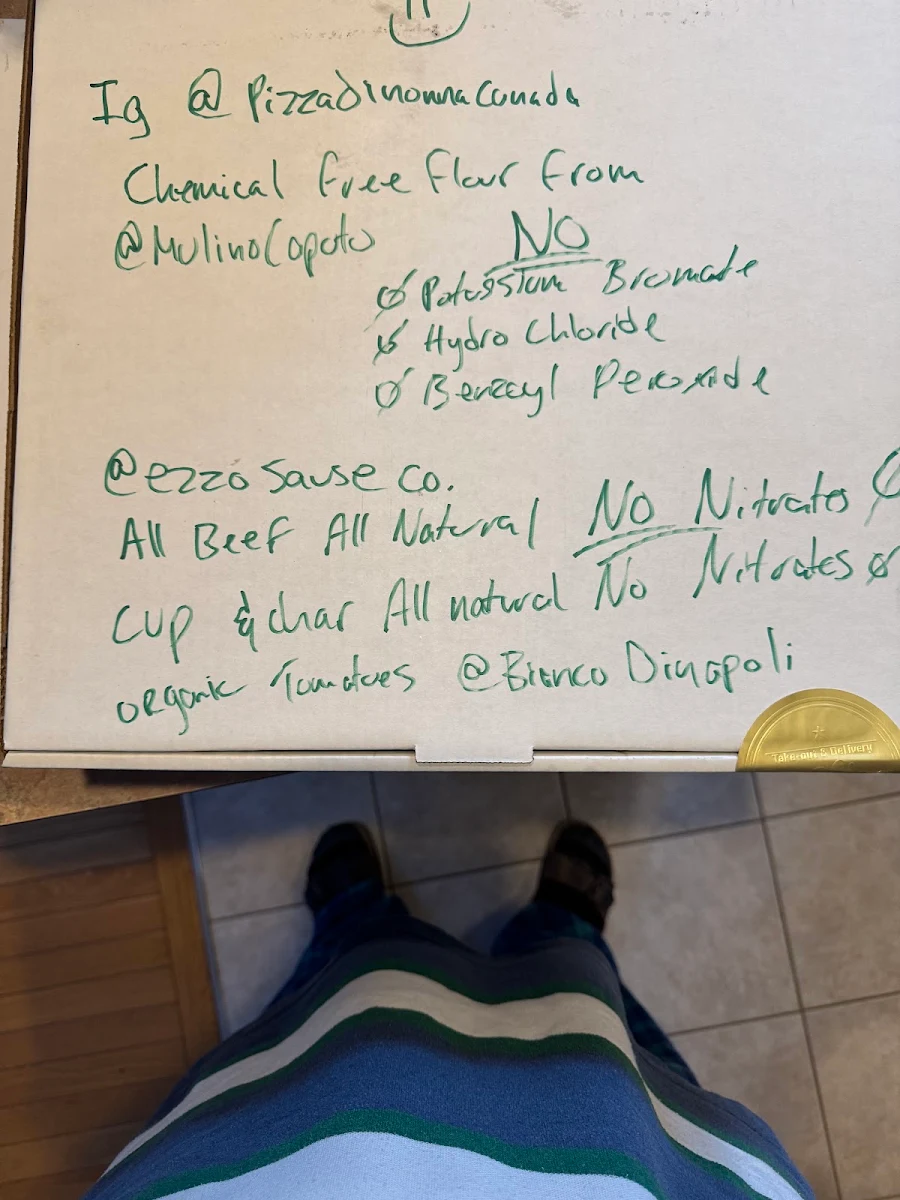 Ig @ PizzaDinonnaCanada
Chemical free flour from
@MulinoCaputo
NO
Potassium Bromate
Hydro Chloride
Benzoyl Peroxide
@ezzo Sause Co.
All Beef All Natural NO Nitrates
Cup & char All natural No Nitrates
organic Tomatoes @Bianco Dinapoli
Takeout & Delivery